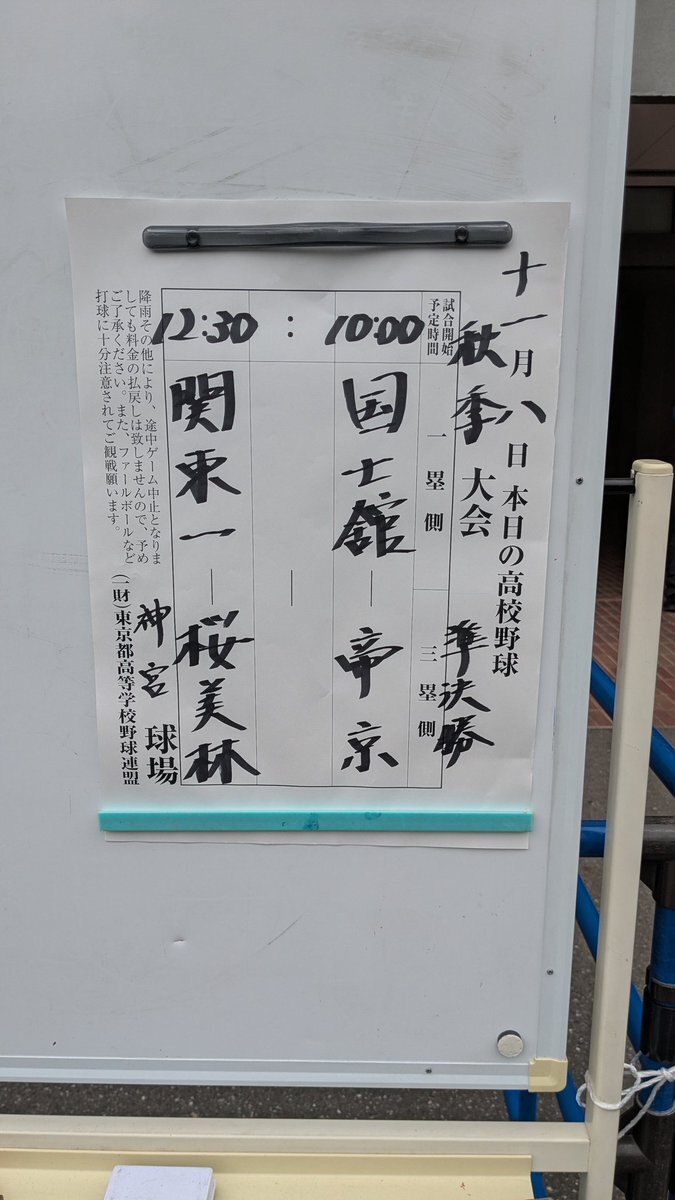 十一月八日 本日の高校野球
秋季 大会 準決勝
試合開始予定時間 一塁側 三塁側
10:00 国士舘 ― 帝京
: ―
12:30 関東一 ― 桜美林
神宮 球場
(一財)東京都高等学校野球連盟
降雨その他により、途中ゲーム中止となりま
しても料金の払戻しは致しませんので、予め
ご了承ください。また、ファールボールなど
打球に十分注意されてご観戦願います。